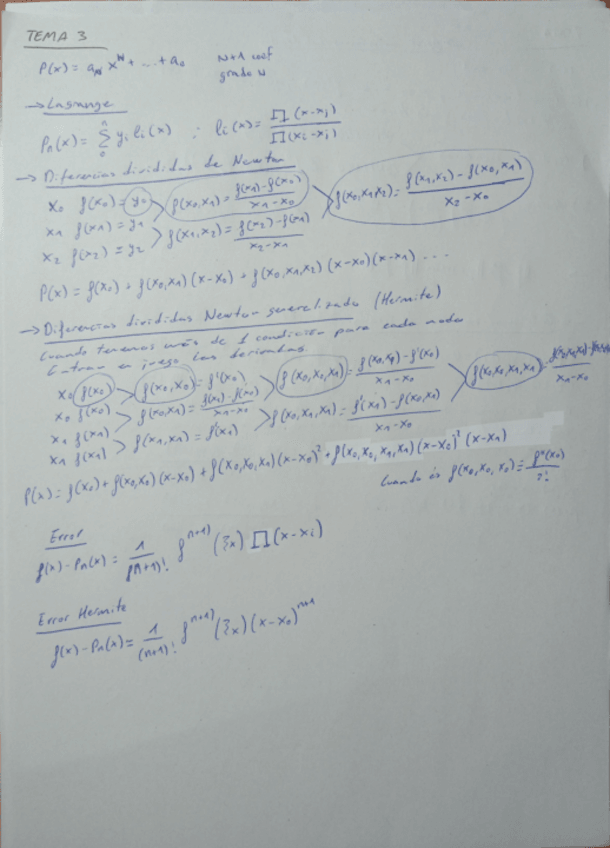 TEMA 3
P(x) = aₙ xᴺ + ... + a₀    N+1 coef
grado N
→ Lagrange
Pₙ(x) = Σ₀ⁿ yᵢ lᵢ(x) ; lᵢ(x) = ∏(x-xⱼ) / ∏(xᵢ-xⱼ)
→ Diferencias divididas de Newton
x₀ f(x₀) = y₀ > f(x₀,x₁) = (f(x₁)-f(x₀))/(x₁-x₀) > f(x₀,x₁,x₂) = (f(x₁,x₂)-f(x₀,x₁))/(x₂-x₀)
x₁ f(x₁) = y₁ > f(x₁,x₂) = (f(x₂)-f(x₁))/(x₂-x₁)
x₂ f(x₂) = y₂
P(x) = f(x₀) + f(x₀,x₁)(x-x₀) + f(x₀,x₁,x₂)(x-x₀)(x-x₁) ...
→ Diferencias divididas Newton generalizado (Hermite)
Cuando tenemos más de 1 condición para cada nodo
Entran en juego las derivadas
x₀ f(x₀) > f(x₀,x₀) = f'(x₀) > f(x₀,x₀,x₁) = (f(x₀,x₁)-f'(x₀))/(x₁-x₀) > f(x₀,x₀,x₁,x₁) =
x₀ f(x₀) > f(x₀,x₁) = (f(x₁)-f(x₀))/(x₁-x₀) > f(x₀,x₁,x₁) = (f'(x₁)-f(x₀,x₁))/(x₁-x₀)
x₁ f(x₁) > f(x₁,x₁) = f'(x₁)
x₁ f(x₁)
P(x) = f(x₀) + f(x₀,x₀)(x-x₀) + f(x₀,x₀,x₁)(x-x₀)² + f(x₀,x₀,x₁,x₁)(x-x₀)²(x-x₁)
Cuando es f(x₀,x₀,x₀) = f''(x₀)/2!
Error
f(x) - Pₙ(x) = 1/(n+1)! f⁽ⁿ⁺¹⁾(ξₓ) ∏(x-xᵢ)
Error Hermite
f(x) - Pₙ(x) = 1/(n+1)! f⁽ⁿ⁺¹⁾(ξₓ)(x-x₀)ⁿ⁺¹